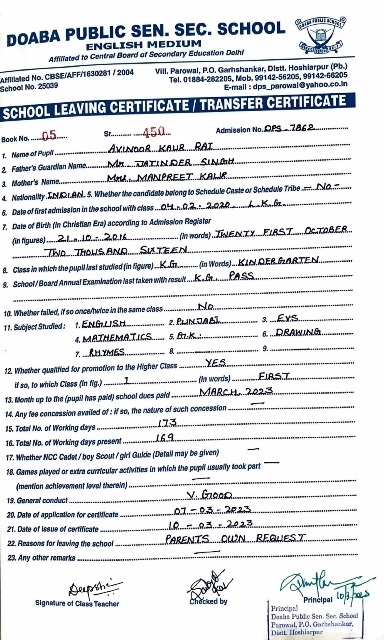 DOABA PUBLIC SEN. SEC. SCHOOL
ENGLISH MEDIUM
Affiliated to Central Board of Secondary Education Delhi
Affiliated No. CBSE/AFF/1630281 / 2004
School No. 25039
Vill. Parowal, P.O. Garhshankar, Distt. Hoshiarpur (Pb.)
Tel. 01884-282205, Mob. 99142-56205, 99142-66205
E-mail : dps_parowal@yahoo.co.in
SCHOOL LEAVING CERTIFICATE / TRANSFER CERTIFICATE
Book No. 05 Sr. 450 Admission No. DPS-7862
1. Name of Pupil AVINOOR KAUR RAI
2. Father's Guardian Name MR. JATINDER SINGH
3. Mother's Name MRS. MANPREET KAUR
4. Nationality INDIAN 5. Whether the candidate belong to Schedule Caste or Schedule Tribe - NO -
6. Date of first admission in the school with class 04-02-2020 L.K.G.
7. Date of Birth (in Christian Era) according to Admission Register
(in figures) 21-10-2016 (in words) TWENTY FIRST OCTOBER
TWO THOUSAND SIXTEEN
8. Class in which the pupil last studied (in figure) K.G. (in Words) KINDERGARTEN
9. School / Board Annual Examination last taken with result K.G. PASS
10. Whether failed, if so once/twice in the same class NO
11. Subject Studied : 1. ENGLISH 2. PUNJABI 3. EVS
4. MATHEMATICS 5. G.K. 6. DRAWING
7. RHYMES 8. 9.
12. Whether qualified for promotion to the Higher Class YES
if so, to which Class (in fig.) 1 (in words) FIRST
13. Month up to the (pupil has paid) school dues paid MARCH, 2023
14. Any fee concession availed of : if so, the nature of such concession —
15. Total No. of Working days 173
16. Total No. of Working days present 169
17. Whether NCC Cadet / boy Scout / girl Guide (Detail may be given) —
18. Games played or extra curricular activities in which the pupil usually took part —
(mention achievement level therein) —
19. General conduct V. GOOD
20. Date of application for certificate 07-03-2023
21. Date of issue of certificate 10-03-2023
22. Reasons for leaving the school PARENTS OWN REQUEST
23. Any other remarks —
Deepshi
Signature of Class Teacher
Checked by
10/3/2023
Principal
Principal
Doaba Public Sen. Sec. School
Parowal, P.O. Garhshankar,
Distt. Hoshiarpur